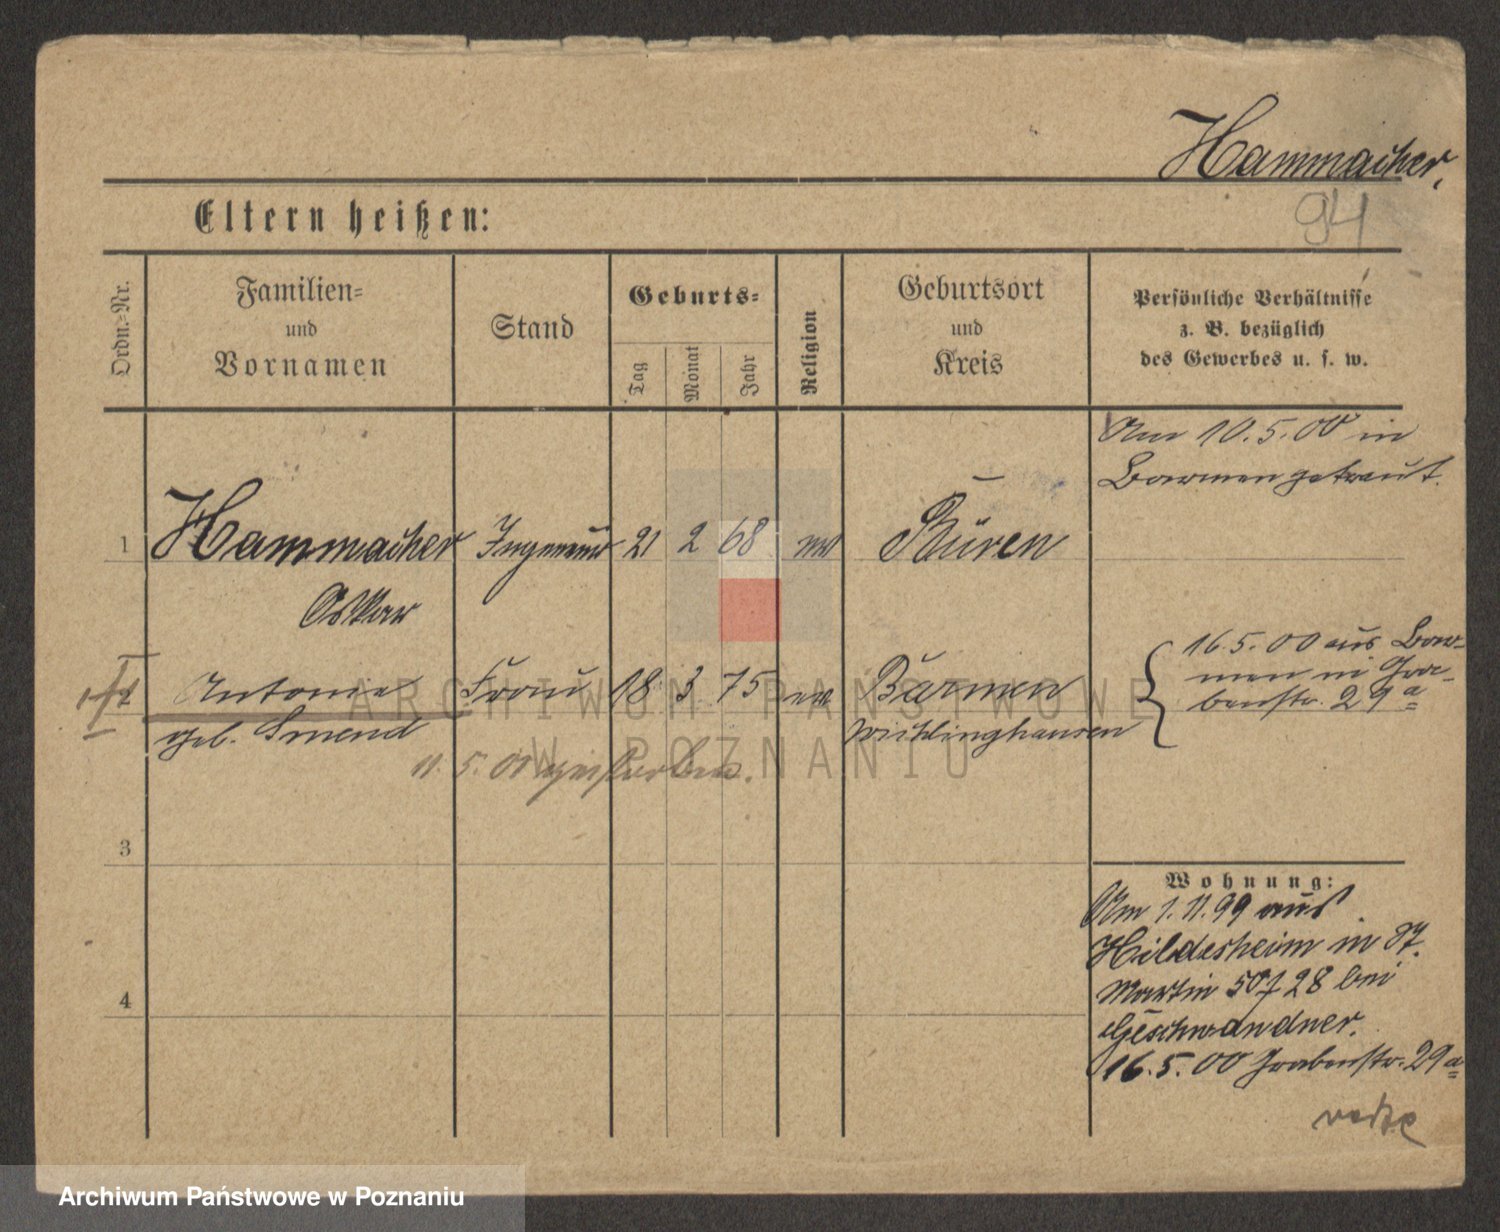 Hammacher,
94
Eltern heißen:
Ordn.=Nr.
Familien=
und
Vornamen
Stand
Geburts=
Tag
Monat
Jahr
Religion
Geburtsort
und
Kreis
Persönliche Verhältnisse
z. B. bezüglich
des Gewerbes u. s. w.
Am 10.5.00 in
Barmen getraut.
1 Hammacher Ingenieur 21 2 68 ev Büren
Oskar
2 Antonie Frau 18 3 75 ev Barmen
geb. Smend Wichlinghausen
16.5.00 aus Bar-
men in Gra-
benstr. 29a
11.5.01 gestorben.
3
4
Wohnung:
Am 1.11.99 aus
Hildesheim in St.
Martin 50/28 bei
Geschwandner.
16.5.00 Grabenstr. 29a
ARCHIWUM PAŃSTWOWE
W POZNANIU
Archiwum Państwowe w Poznaniu